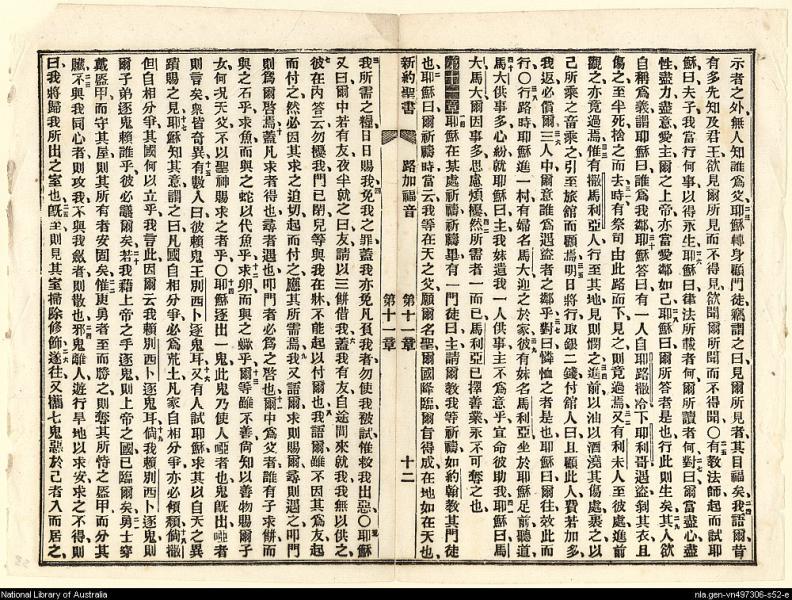 示者之外無人知誰爲父耶穌轉身顧門徒竊謂之曰見爾所見者其目福矣我語爾昔
有多先知及君王欲見爾所見而不得見欲聞爾所聞而不得聞〇有教法師起而試耶
穌曰夫子我當行何事以得永生耶穌曰律法所載者何爾所讀者何對曰爾當盡心盡
性盡力盡意愛主爾之上帝亦當愛鄰如己耶穌曰爾所答者是也行此則生矣其人欲
自稱爲義謂耶穌曰誰爲我鄰耶穌答曰有一人自耶路撒冷下耶利哥遇盜剝其衣且
傷之至半死捨之而去時有祭司由此路而下見之則竟過焉又有利未人至彼處進前
觀之亦竟過焉惟有撒馬利亞人行至其地見則憫之進前以油以酒澆其傷處裹之以
己所乘之畜乘之引至旅館而顧焉明日將行取銀二錢付館人曰且顧此人費若加多
我返必償爾三人中爾意誰爲遇盜者之鄰乎對曰憐恤之者是也耶穌曰爾往效此而
行〇行路時耶穌進一村有婦名馬大迎之於家彼有妹名馬利亞坐於耶穌足前聽道
馬大供事多心紛就耶穌曰主我妹遺我一人供事主不爲意乎宜命彼助我耶穌曰馬
大馬大爾因事多思慮煩擾然所需者一而已馬利亞已擇善業永不可奪之也
第十一章耶穌在某處祈禱祈禱畢有一門徒曰主請爾教我等祈禱如約翰教其門徒
也耶穌曰爾祈禱時當云我等在天之父願爾名聖爾國降臨爾旨得成在地如在天也
第十一章 十二
新約聖書 路加福音 第十一章
我所需之糧日日賜我免我之罪蓋我亦免凡負我者勿使我被試惟救我出惡〇耶穌
又曰爾中若有友夜半就之曰友請以三餅借我蓋我有友自途間來就我我無以供之
彼在內答云勿擾我門已閉兒等與我在牀不能起以付爾也我語爾雖不因其爲友起
而付之然必因其求之迫切起而付之應其所需焉我又語爾求則賜爾尋則遇之叩門
則爲爾啓焉蓋凡求者得也尋者遇也叩門者必爲之啓也爾中爲父者誰有子求餅而
與之石乎求魚而與之蛇以代魚乎求卵而與之蠍乎爾等雖不善尚知以善物賜爾子
女何況天父不以聖神賜求之者乎〇耶穌逐出一鬼此鬼乃使人啞者也鬼既出啞者
則言矣衆皆奇異有數人曰彼賴鬼王別西卜逐鬼耳又有人試耶穌求其以自天之異
蹟賜之見耶穌知其意謂之曰凡國自相分爭必爲荒土凡家自相分爭亦必傾頹倘撒
但自相分爭其國何以立乎我言此因爾云我賴別西卜逐鬼耳倘我賴別西卜逐鬼則
爾子弟逐鬼賴誰乎彼必議爾矣若我藉上帝之手逐鬼則上帝之國已臨爾矣勇士穿
戴盔甲而守其屋則其所有者安固矣惟更勇者至而勝之則奪其所恃之盔甲而分其
贓不與我同心者則攻我不與我斂者則散也邪鬼離人遊行旱地以求安求之不得則
曰我將歸我所出之室也既至則見其室掃除修飾遂往又攜七鬼惡於己者入而居之
National Library of Australia
nla.gen-vn497306-s52-e